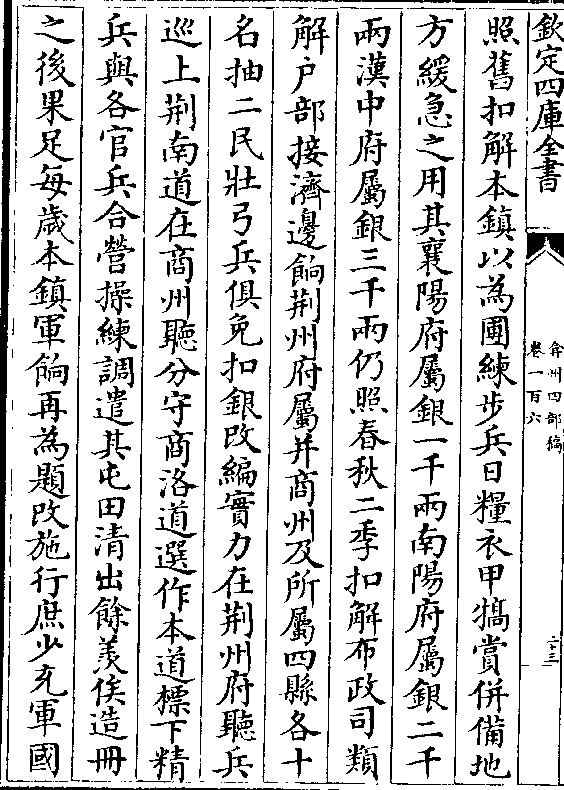 欽定四庫全書
弇州四部稿
卷一百六
二十三
照舊扣解本鎮以為團練步兵日糧衣甲犒賞併備地
方緩急之用其襄陽府屬銀一千兩南陽府屬銀二千
兩漢中府屬銀三千兩仍照春秋二季扣解布政司類
解户部接濟邊餉荆州府屬并商州及所屬四縣各十
名抽二民壯弓兵俱免扣銀改編實力在荆州府聽兵
巡上荆南道在商州聽分守商洛道選作本道標下精
兵與各官兵合營操練調遣其屯田清出餘羨俟造冊
之後果足每歲本鎮軍餉再為題改施行庶少充軍國